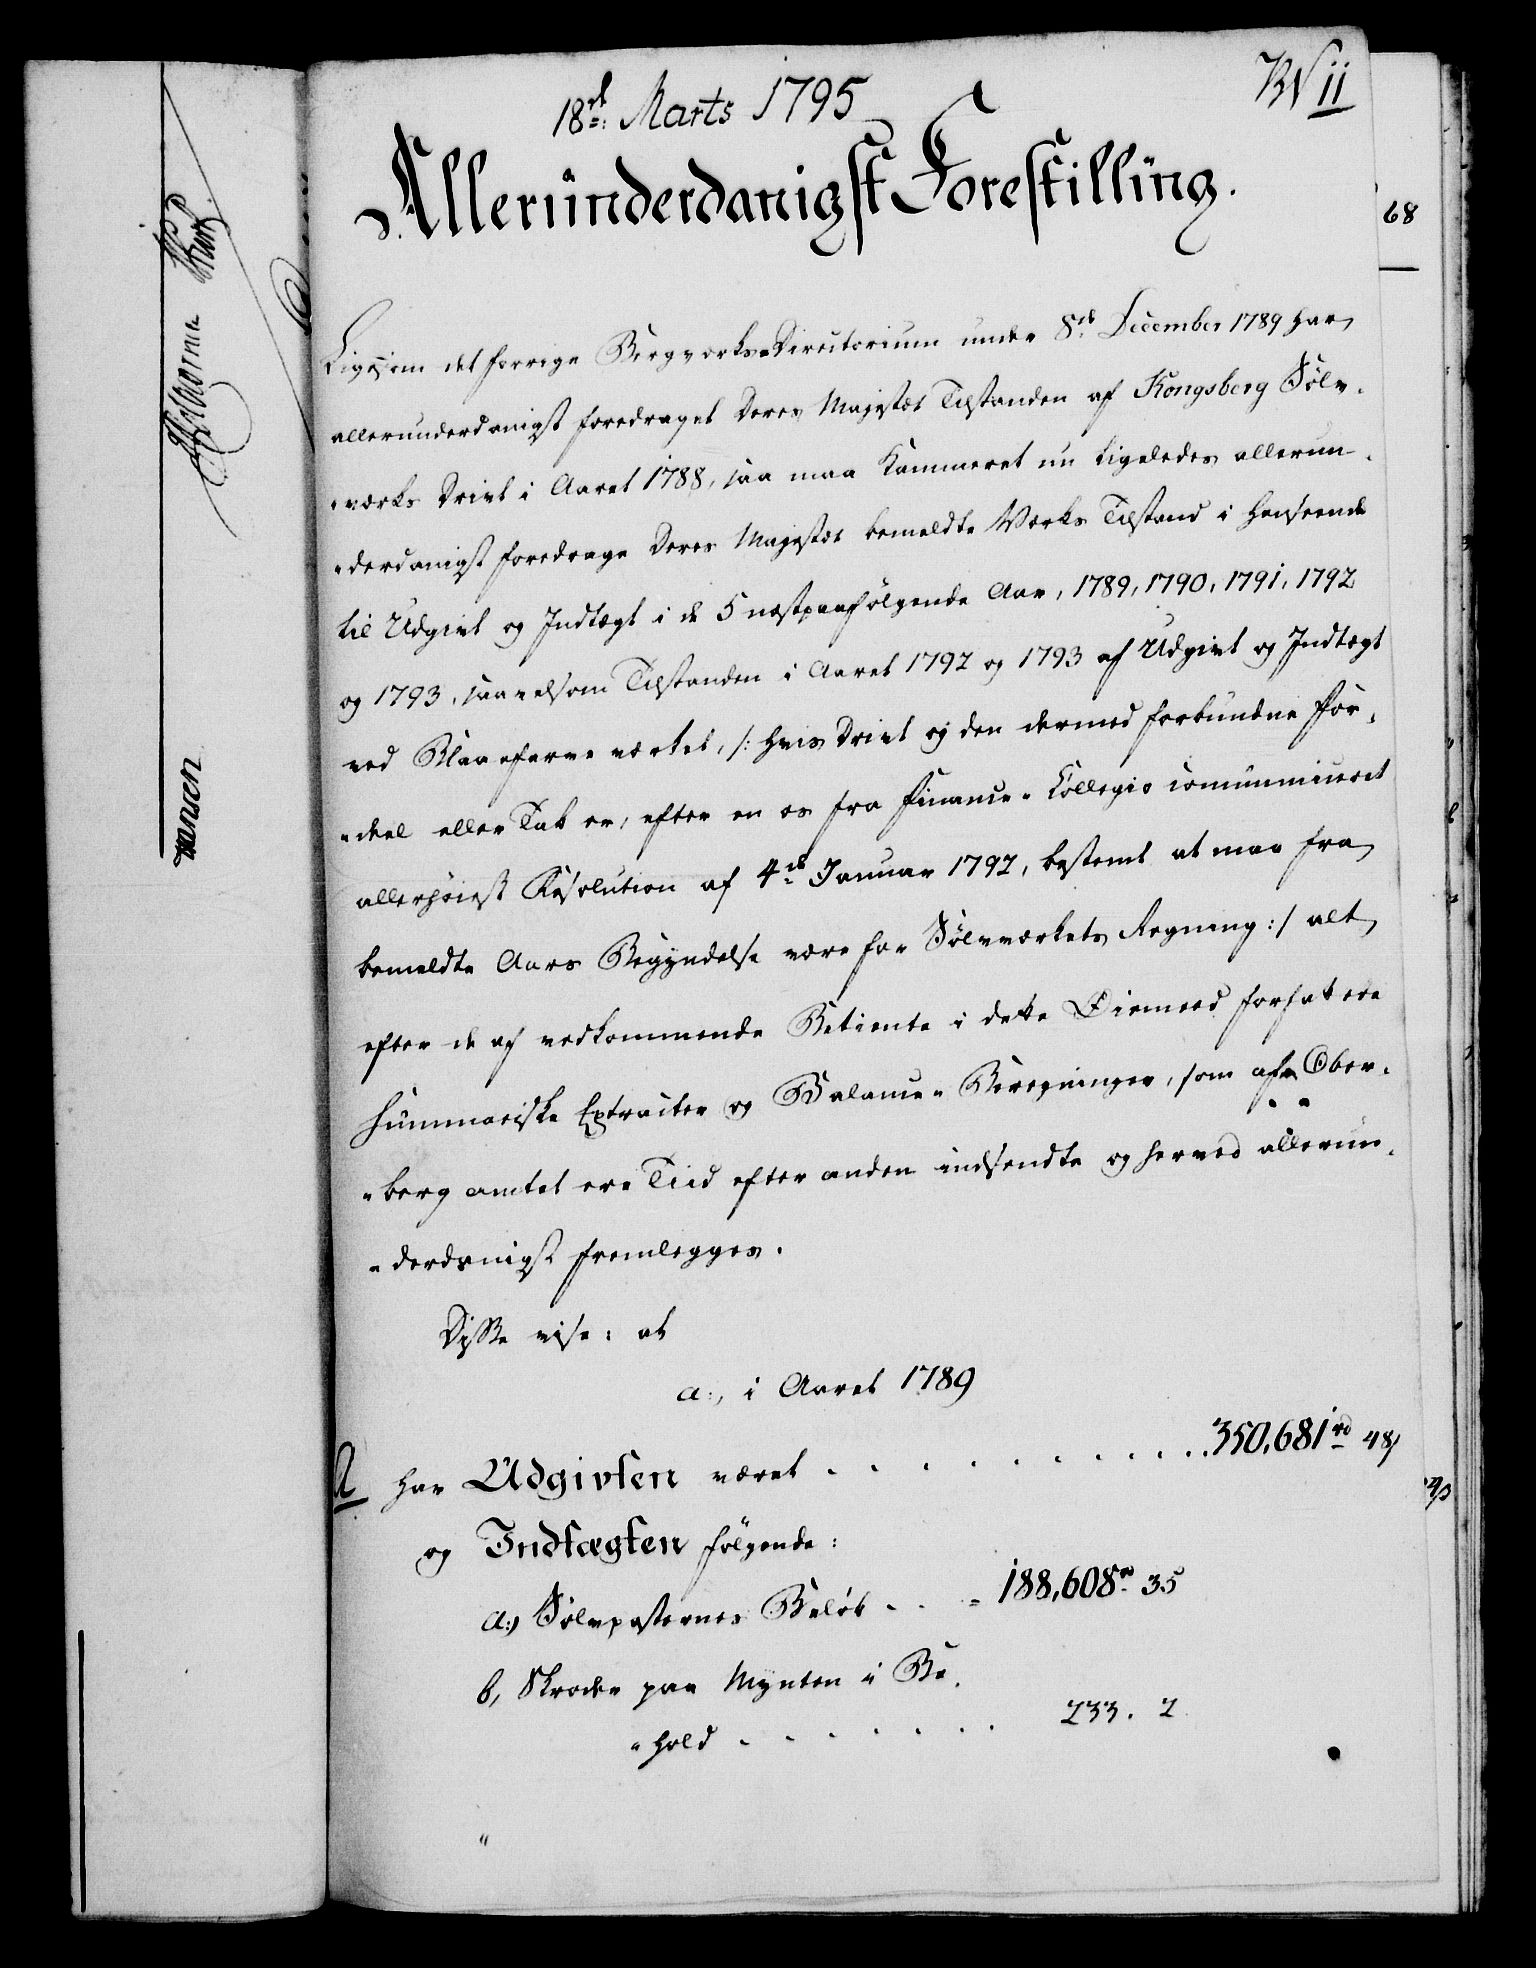 18de Marts 1795
No 11
Allerunderdanigst Forestilling.
68
Ligesom det forrige Bergverks-Directorium under 8de December 1789 har
allerunderdanigst foredraget Deres Majestæt Tilstanden af Kongsberg Sölv-
-værks Drivt i Aaret 1788, saa maa Kammeret nu ligeledes allerun-
-derdanigst foredrage Deres Majestæt bemeldte Værks Tilstand i Henseende
til Udgivt og Indtægt i de 5 næstpaafölgende Aar, 1789, 1790, 1791, 1792
og 1793, saavelsom Tilstanden i Aaret 1792 og 1793 af Udgivt og Indtægt
ved Blaafarveværket, /: hvis Drivt og den dermed forbundne For-
-deel eller Tab er, efter en os fra Finance-Collegio communiceret
allerhöiest Resolution af 4de Januar 1792, bestemt at maa fra
bemeldte Aars Begyndelse være for Sölvværkets Regning :/ alt
efter de af vedkommende Betiente i dette Öiemeed forfattede
summariske Extracter og Balance-Beregninger, som af Ober-
-berg amtet ere Tiid efter anden indsendte og herved allerun-
-derdanigst fremlegges.
Disse vise: at
a., i Aaret 1789
har Udgivten været . . . . . . . . . 350,681 rd 48
og Indtægten fölgende:
a.) Sölvposternes Belöb . . = 188,608 rd 35
b, Skroder paa Mynten i Be-
-hold . . . . . . 233. 2